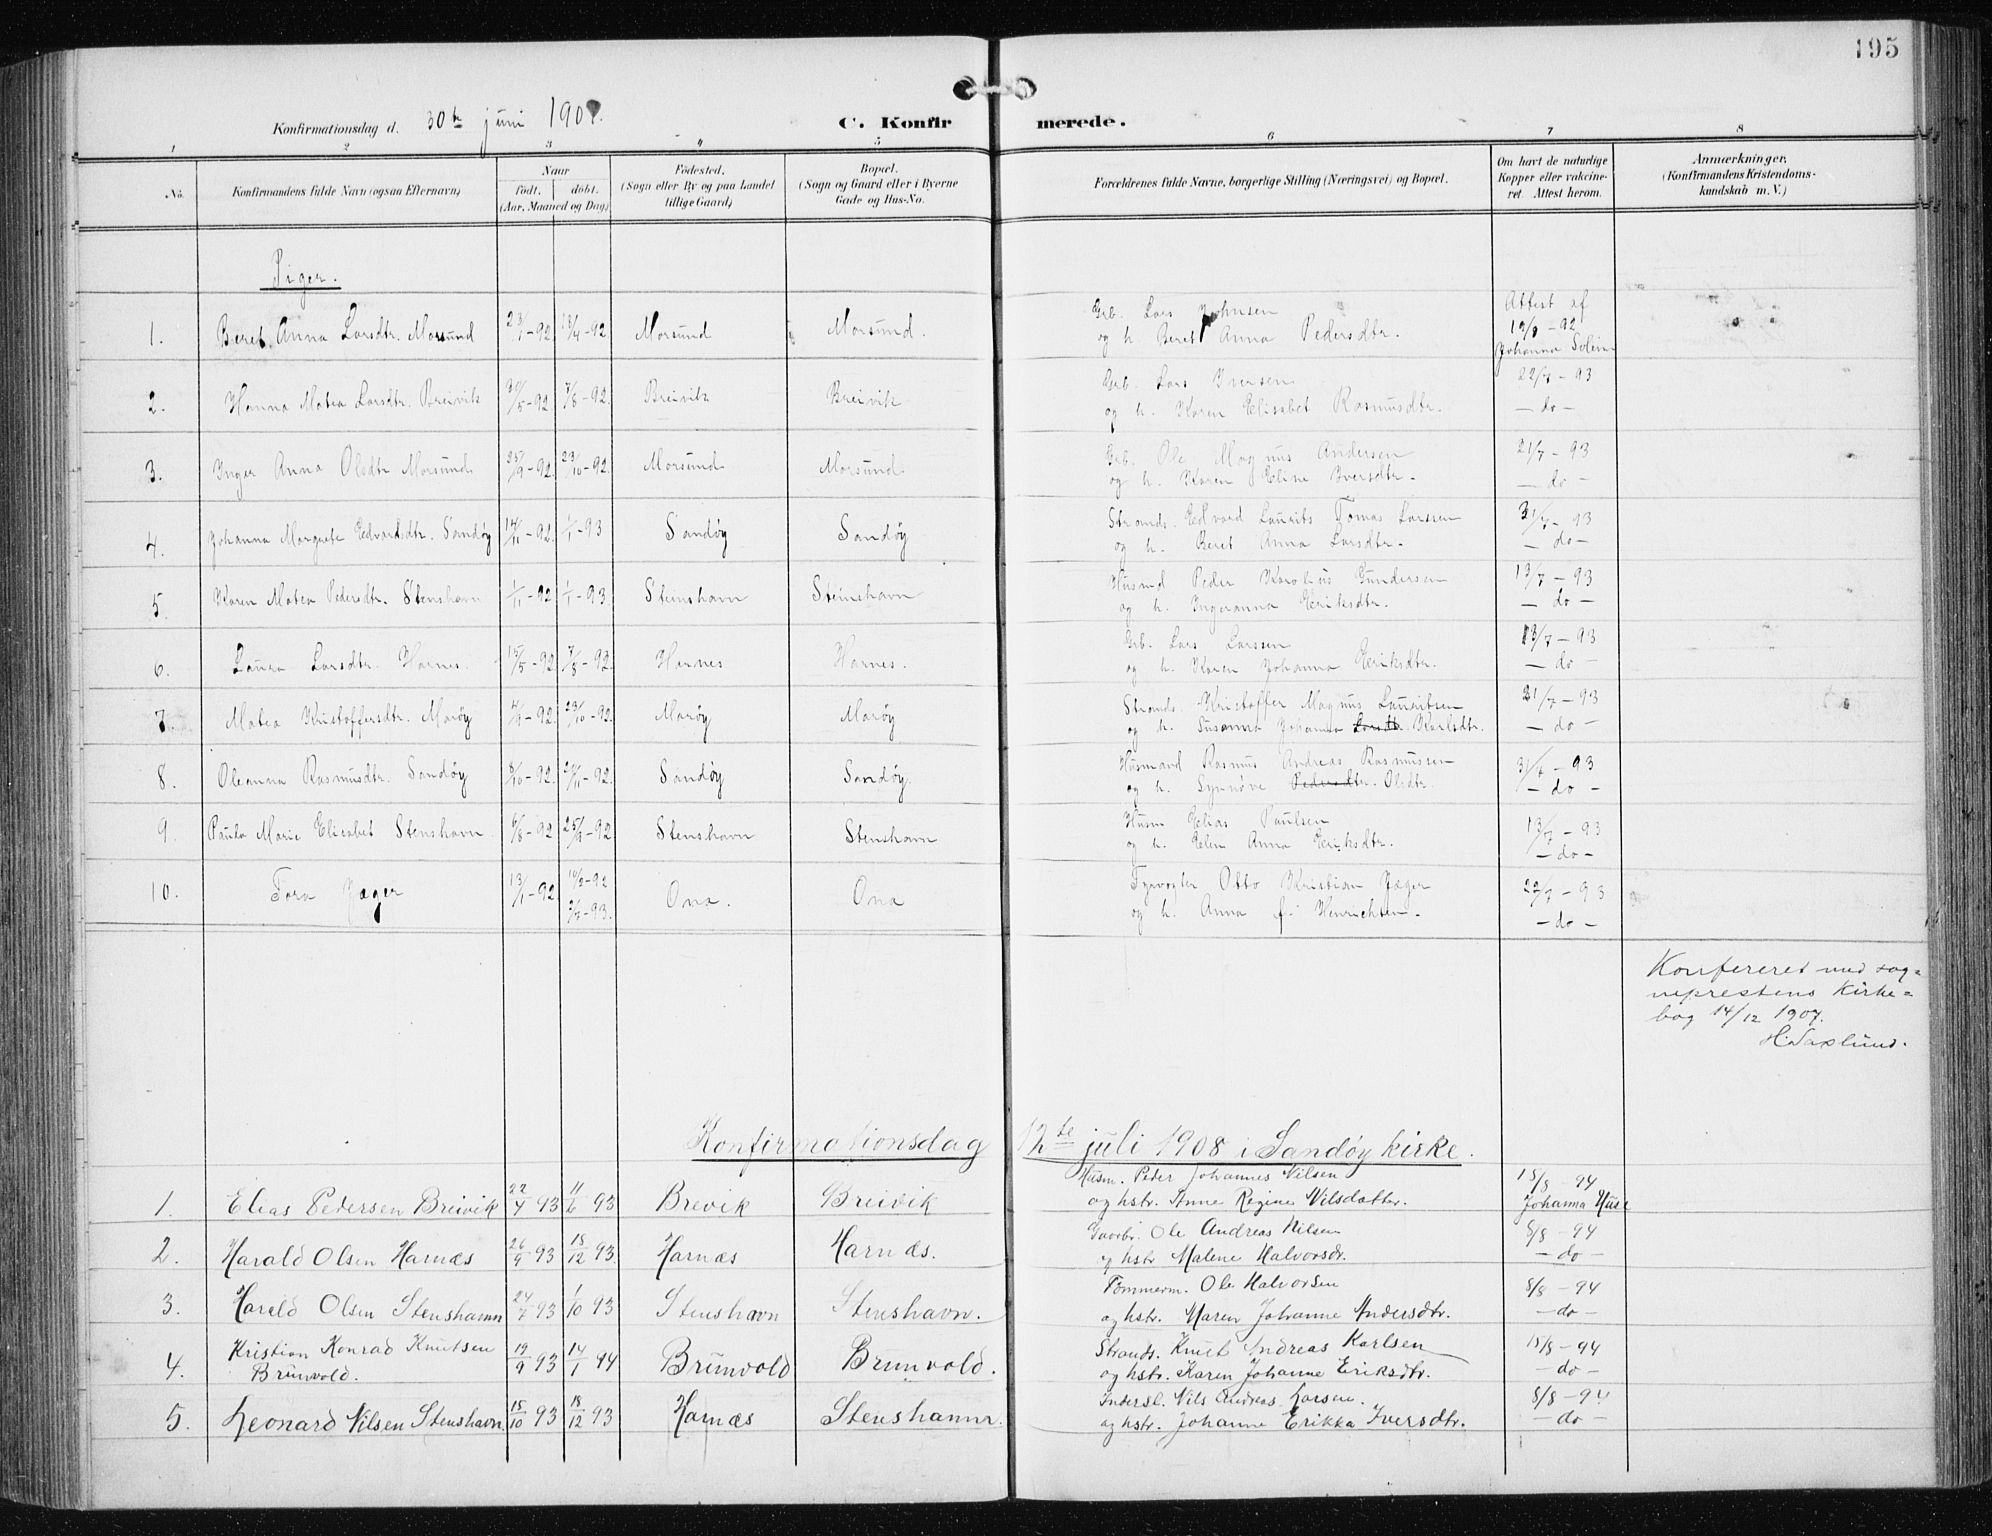 195
Konfirmationsdag d. 30te juni 1907.
C. Konfirmerede.
1 2 3 4 5 6 7 8
No.
Konfirmandens fulde Navn (ogsaa Efternavn)
Naar
født. døbt.
(Aar, Maaned og Dag)
Fødested.
(Sogn eller By og paa Landet
tillige Gaard)
Bopæl.
(Sogn og Gaard eller i Byerne
Gade og Hus-No.
Forældrenes fulde Navne, borgerlige Stilling (Næringsvei) og Bopæl.
Om havt de naturlige
Kopper eller vakcine-
ret. Attest herom.
Anmærkninger.
(Konfirmandens Kristendoms-
kundskab m. V.)
Piger.
1. Beret Anna Larsdtr. Morsund 23/1-92 18/4-92 Morsund Morsund. Grb. Lars Johnsen
og h. Beret Anna Pedersdtr.
Attest af
19/8-92
Johanna Solem
2. Hanna Matea Larsdtr. Breivik 30/5-92 7/8-92 Breivik Breivik Grb. Lars Iversen
og h. Karen Elisabet Rasmusdtr.
22/7-93
-do-
3. Inger Anna Olsdtr Morsund 25/9-92 23/10-92 Morsund Morsund Grb. Ole Magnus Andersen
og h. Karen Eline Iversdtr.
21/7-93
-do-
4. Johanna Margrete Edvardsdtr. Sandøy 14/11-92 1/1-93 Sandøy Sandøy Strands. Edvard Laurits Tomas Larssen
og h. Beret Anna Larsdtr.
31/7-93
-do-
5. Karen Matea Pedersdtr. Stenshavn 1/11-92 1/1-93 Steinshavn Steinshavn Husmd Peder Karolius Gundersen
og h. Ingeranna Eriksdtr.
13/7-93
-do-
6. Laura Larsdtr. Harnes. 15/5-92 7/8-92 Harnes Harnes. Grb. Lars Larssen
og h. Karen Johanna Eriksdtr.
13/7-93
-do-
7. Matea Kristoffersdtr. Marøy 4/9-92 23/10-92 Marøy Marøy Strands. Kristoffer Magnus Lauritsen
og h. Susanna Johanna Larsdtr. Karlsdtr.
21/7-93
-do-
8. Oleanna Rasmusdtr. Sandøy 8/10-92 27/11-92 Sandøy Sandøy Husmand Rasmus Andreas Rasmussen
og h. Synnøve Pedersdtr. Olsdtr.
31/7-93
-do-
9. Paula Marie Elisabet Stenshavn. 6/8-92 25/9-92 Stenshavn Stenshavn Husm Elias Paulsen
og h. Elen Anna Eriksdtr.
13/7-93
-do-
10. Tora Jæger 13/1-92 14/2-92
2/7-93. Ona. Ona Fyrvogter Otto Kristian Jæger
og h. Anna f. Henrichsen.
22/7-93
-do-
Konfereret med sog=
neprestens Kirke=
bog 14/12 1907.
H. Saxlund.
Konfirmationsdag 12te juli 1908 i Sandøy kirke.
1. Elias Pedersen Breivik 22/4 93 11/6 93 Brevik Breivik Husm. Peter Johannes Nilsen
og hstr. Anne Regine Nilsdatter.
15/8-94
Johanna Huse
2. Harald Olsen Harnæs 26/9 93 18/12 93. Harnæs Harnæs. Gaardbr. Ole Andreas Nilsen
og hstr Malene Halvorsdr.
8/8-94
-do-
3. Harald Olsen Stenshamn 24/7 93 1/10 93 Stenshavn Stenshavn. Tømmerm. Ole Halvorsen
og hstr. Maren Johanne Andersdtr.
8/8-94
-do-
4. Kristian Konrad Knutsen
Brunvold. 19/9 93 14/1 94 Brunvold Brunvold. Strands. Knut Andreas Karlsen
og hstr. Karen Johanne Eriksdtr.
15/8-94
-do-
5. Leonard Nilsen Stenshavn. 15/10 93 18/12 93 Harnæs Stenshamn. Indersl. Nils Andreas Larsen.
og hstr. Johanne Erikka Iversdtr.
8/8-94
-do-